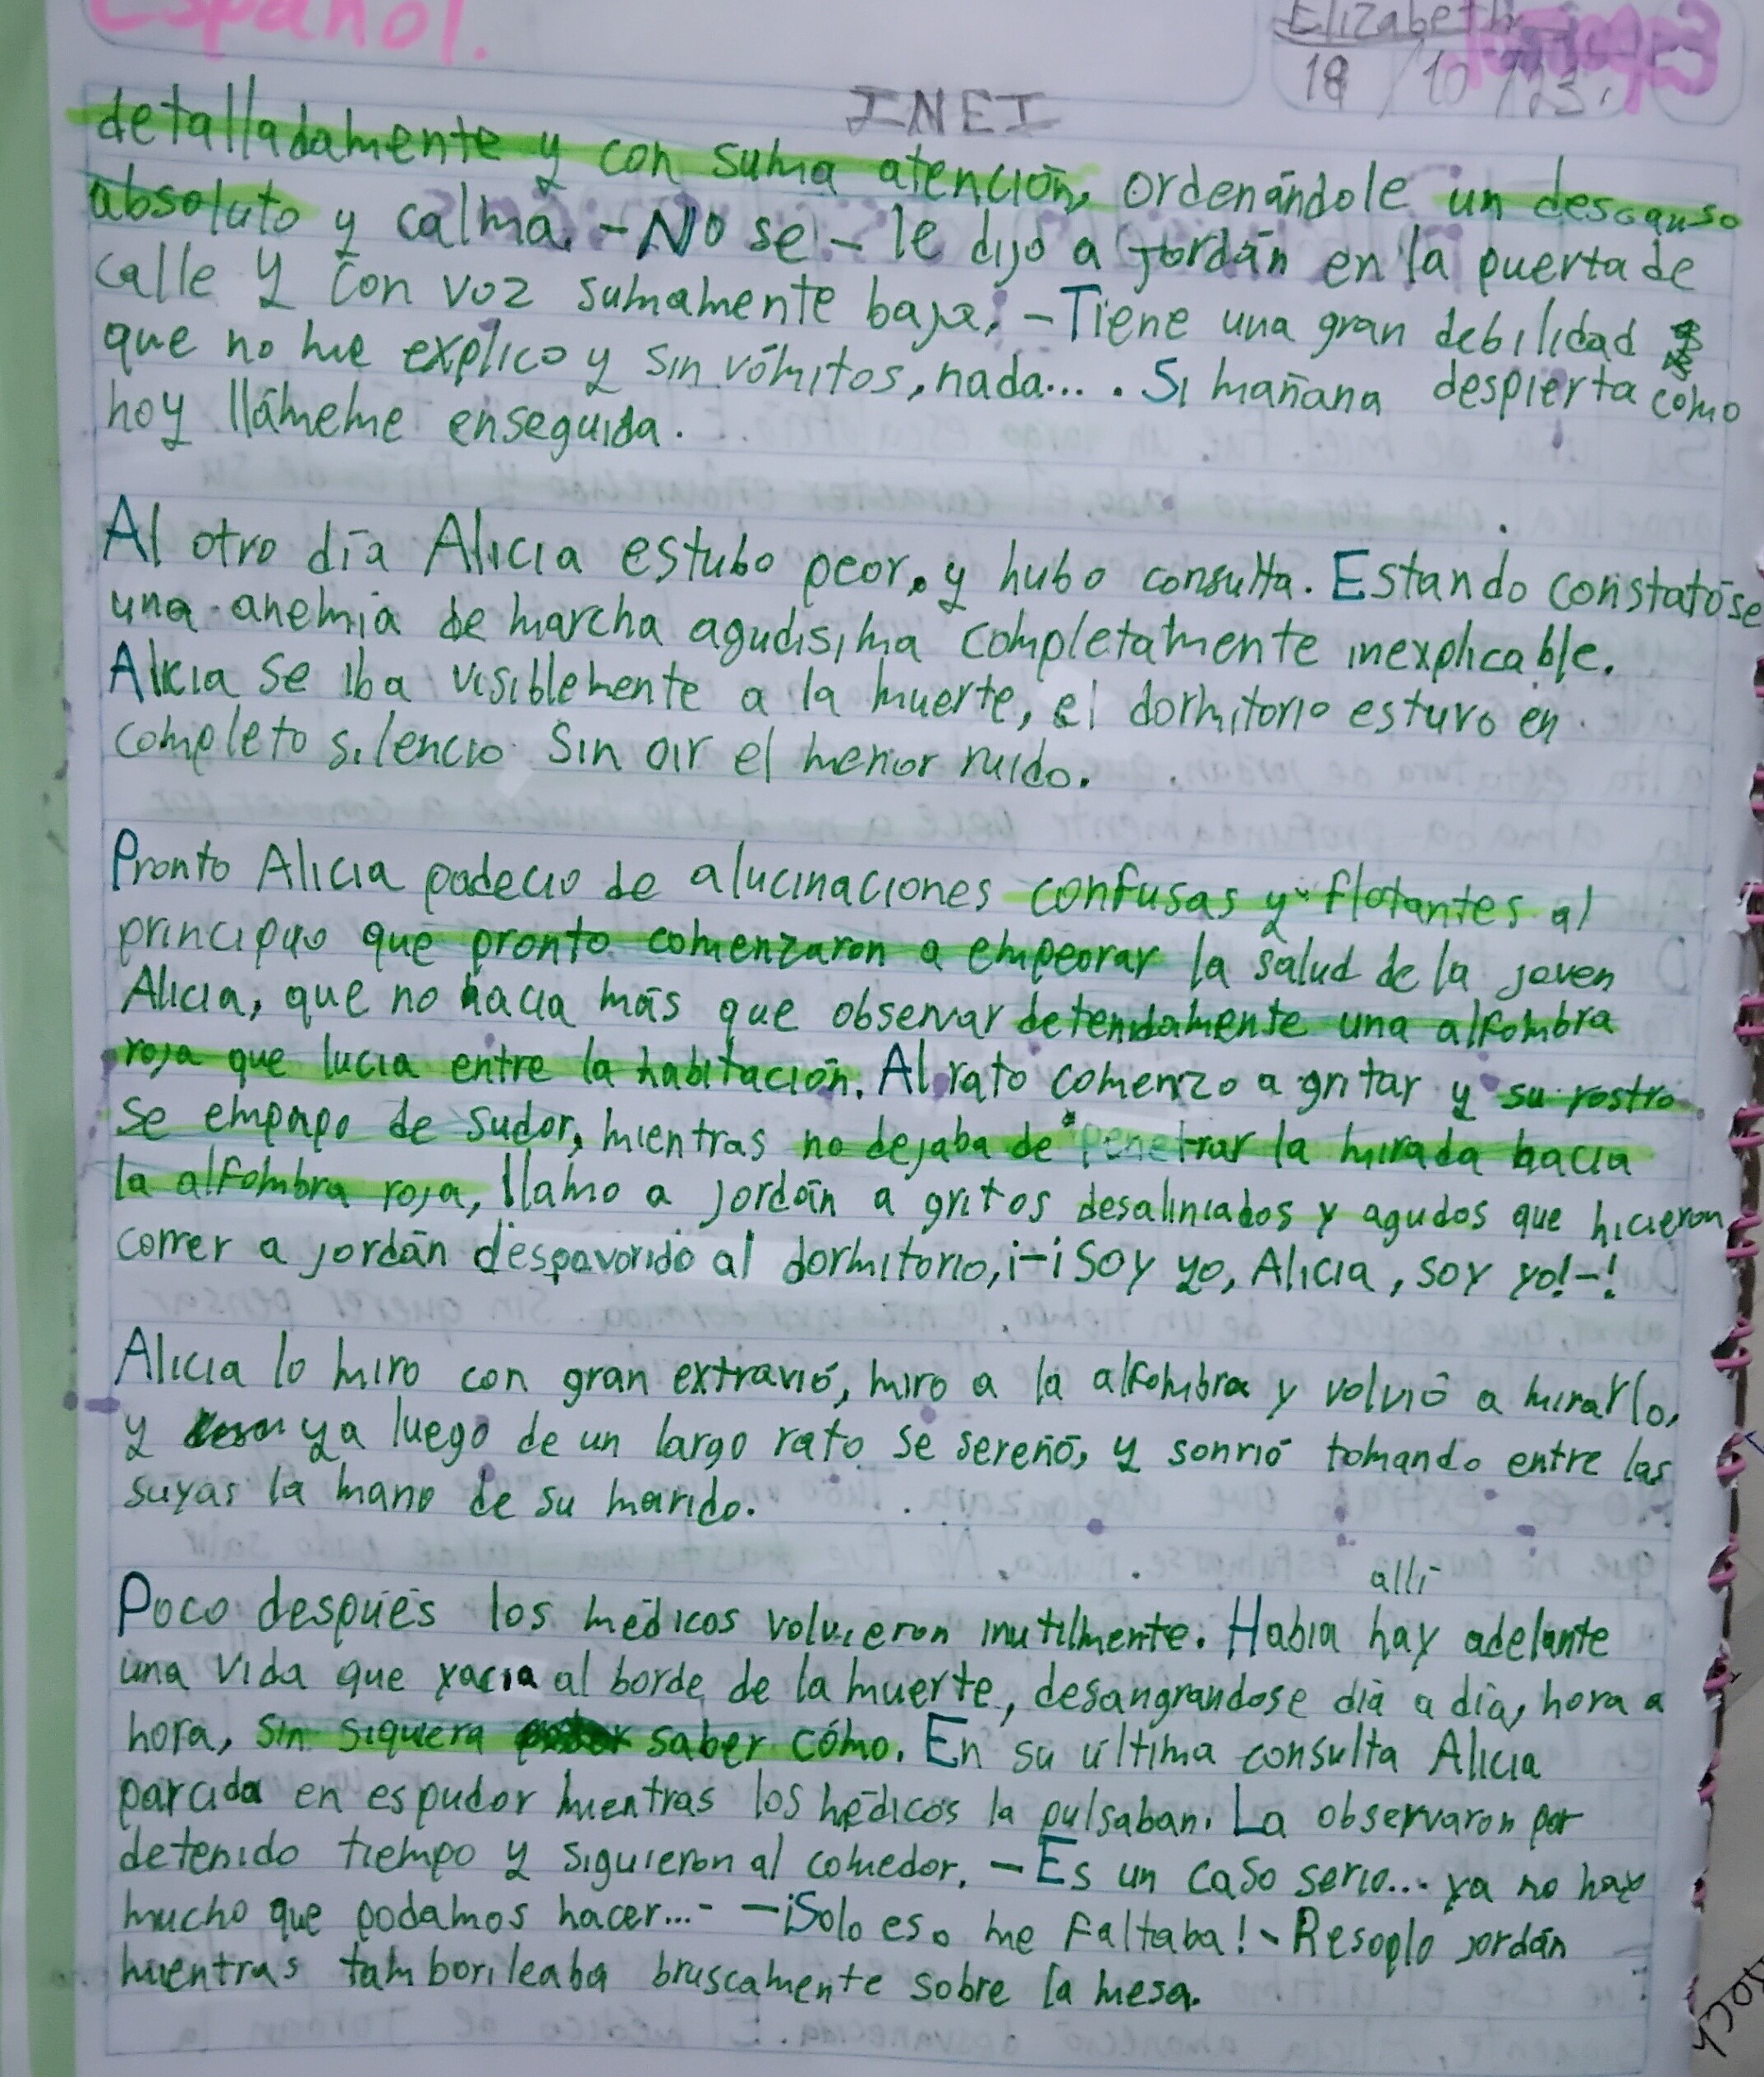 Español.
Elizabeth
18/10/23.
INEI
detalladamente y con suma atención, ordenándole un descanso
absoluto y calma. -No se- le dijo a Jordán en la puerta de
calle y con voz sumamente baja. -Tiene una gran debilidad
que no me explico y sin vómitos, nada.... Si mañana despierta como
hoy llámeme enseguida.
Al otro día Alicia estubo peor, y hubo consulta. Estando constatóse
una anemia de marcha agudísima completamente inexplicable.
Alicia se iba visiblemente a la muerte, el dormitorio estuvo en
completo silencio sin oir el menor ruido.
Pronto Alicia padecio de alucinaciones confusas y flotantes al
principio que pronto comenzaron a empeorar la salud de la joven
Alicia, que no hacia más que observar detenidamente una alfombra
roja que lucia entre la habitación. Al rato comenzo a gritar y su rostro
se empapo de sudor, mientras no dejaba de penetrar la mirada hacia
la alfombra roja, llamo a jordán a gritos desaliniados y agudos que hicieron
correr a jordán despavorido al dormitorio, ¡-¡Soy yo, Alicia, soy yo!-!
Alicia lo miro con gran extravió, miro a la alfombra y volvió a mirarlo,
y ya luego de un largo rato se sereñó, y sonrió tomando entre las
suyas la mano de su marido.
alli
Poco despúes los médicos volvieron inutilmente. Habia hay adelante
una vida que yacia al borde de la muerte, desangrandose día a día, hora a
hora, sin siquiera saber cómo. En su última consulta Alicia
parcida en espudor mientras los médicos la pulsaban. La observaron por
detenido tiempo y siguieron al comedor. -Es un caso serio... ya no hay
mucho que podamos hacer...- -¡Solo eso me faltaba!- Resoplo jordán
mientras tamborileaba bruscamente sobre la mesa.